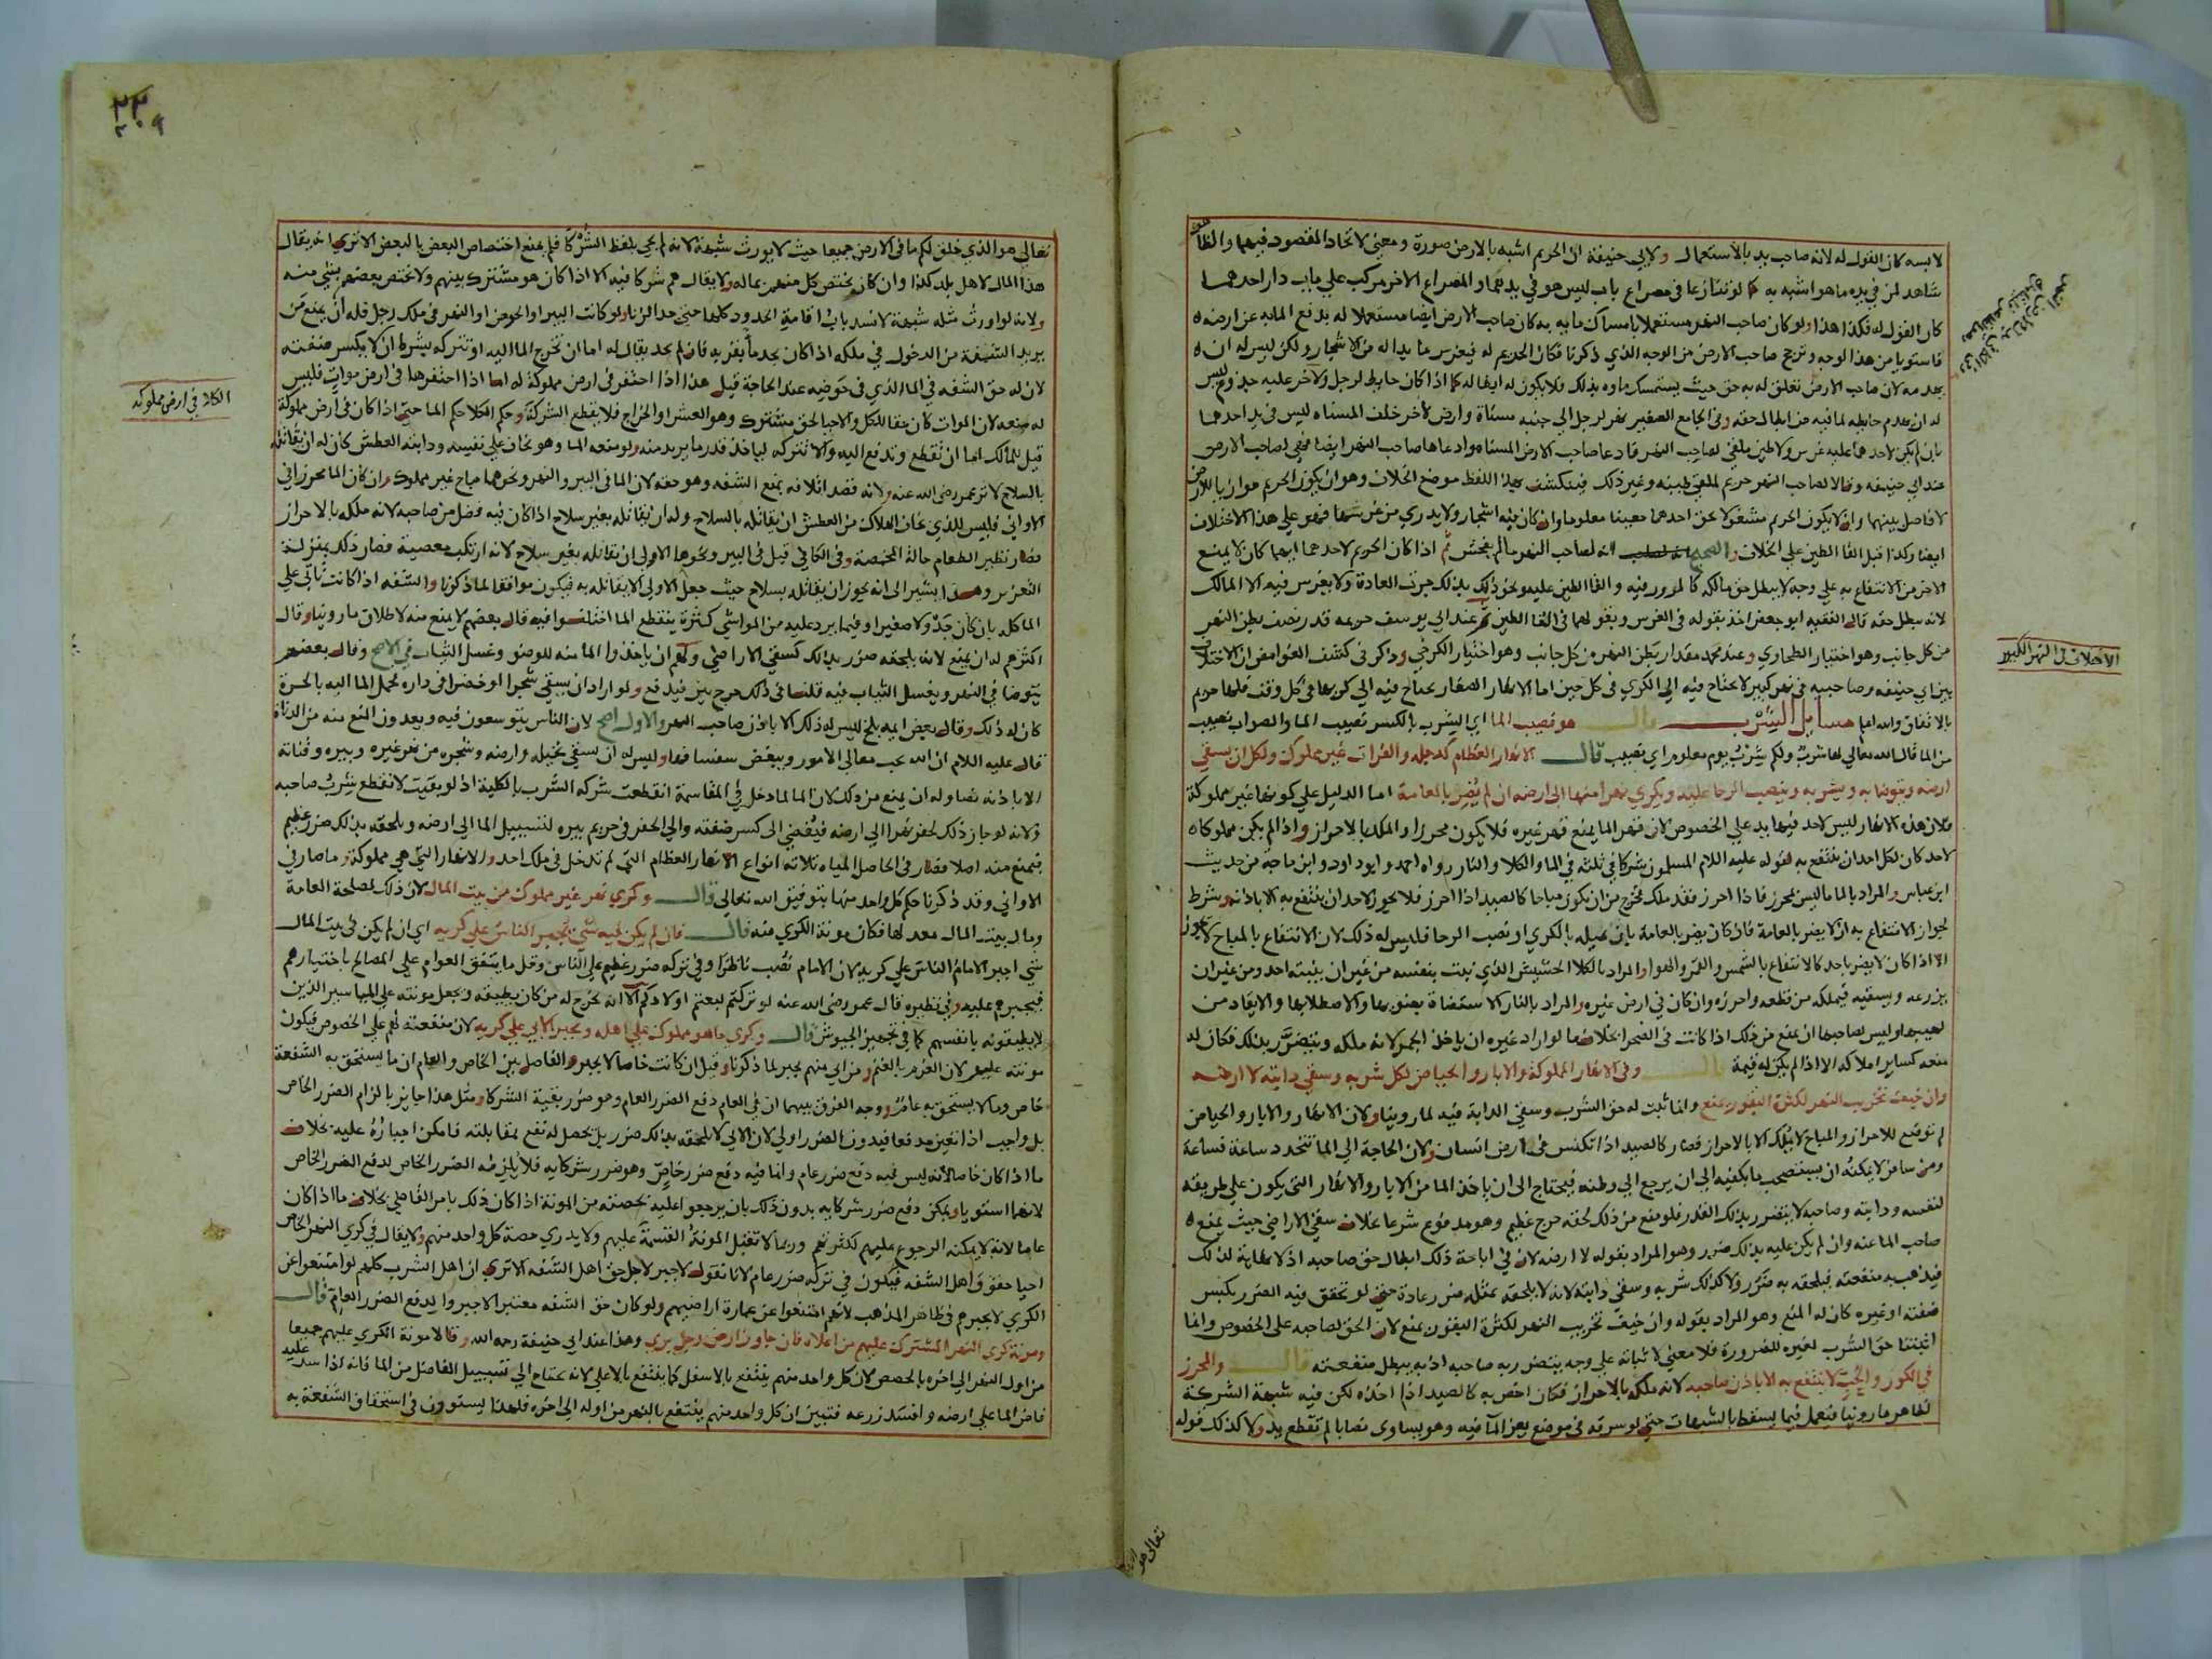 لابسه كان القول له لانه صاحب يد بالاستعمال ولابي حنيفة ان الحريم اشبه بالارض صورة ومعنى لاتحاد المقصود فيهما والظا
شاهد لمن في يده ما هو اشبه به كما لو تنازعا في مصراع باب ليس هو في يدهما والمصراع الاخر مركب علي باب دار احدهما
كان القول له فكذا هذا ولو كان صاحب النهر مستعملا بامساك مايه به كان صاحب الارض ايضا مستعملا له بدفع الما به عن ارضه
فاستويا من هذا الوجه وترجح صاحب الارض من الوجه الذي ذكرنا فكان الحريم له فيغرس ما بدا له من الاشجار ولكن ليس له ان
يهدمه لان صاحب النهر تعلق له به حق حيث يستمسك ماوه بذلك فلا يكون له ابطاله كما اذا كان حايط لرجل ولاخر عليه جذوع ليس
له ان يهدم حايطه لما فيه من ابطال حقه وفي الجامع الصغير نهر لرجل الي جنبه مسناة وارض لاخر خلف المسناه ليس في يد احدهما
بان لم يكن لاحدهما عليه غرس ولا طين ملقي لصاحب النهر فادعا صاحب الارض المسناه وادعاها صاحب النهر ايضا فهي لصاحب الارض
عند ابي حنيفه وقالا لصاحب النهر حريم لملقي طينه وغير ذلك فينكشف بهذا اللفظ موضع الخلاف وهو ان يكون الحريم موازيا للارض
لا فاصل بينهما وان لا يكون الحريم مشغولا بحق احدهما معينا معلوما وان كان فيه اشجار ولا يدري من غرسها فهو علي هذا الاختلاف
ايضا وكذا قيل القا الطين علي الخلاف والصحيح انه لصاحب النهر ما لم يفحش ثم اذا كان الحريم لاحدهما ايهما كان لا يمنع
الاخر من الانتفاع به علي وجه لا يبطل حق مالكه كالمرور فيه والقا الطين عليه ونحو ذلك بذلك جرت العادة ولا يغرس فيه الا المالك
لانه يبطل حقه قال الفقيه ابو جعفر اخذ بقوله في الغرس وبقولهما في القا الطين ثم عند ابي يوسف حريمه قدر نصف بطن النهر
من كل جانب وهو اختيار الطحاوي وعند محمد مقدار بطن النهر من كل جانب وهو اختيار الكرخي وذكر في كشف الغوامض ان الاختلاف
بين ابي حنيفه وصاحبيه في نهر كبير لا يحتاج فيه الي الكري في كل حين اما الانهار الصغار يحتاج فيه الي كريها في كل وقت فلها حريم
بالاتفاق والله اعلم مسايل الشرب قال هو نصيب الما اي الشرب بالكسر نصيب الما والصواب نصيب
من الما قال الله تعالي لها شرب ولكم شرب يوم معلوم اي نصيب قال الانهار العظام كدجله والفرات غير مملوك ولكل ان يسقي
ارضه ويتوضا به ويشربه وينصب الرحا عليه ويكري نهرا منها الي ارضه ان لم يضر بالعامة اما الدليل علي كونها غير مملوكة
فلان هذه الانهار ليس لاحد فيها يد علي الخصوص لان قهر الما يمنع قهر غيره فلا يكون محرزا والملك بالاحراز واذا لم يكن مملوكا
لاحد كان لكل احد ان ينتفع به لقوله عليه اللام المسلمون شركا في ثلثه في الما والكلا والنار رواه احمد وابو داود وابن ماجة من حديث
ابن عباس والمراد بالما ما ليس بمحرز فاذا احرز فقد ملك فخرج من ان يكون مباحا كالصيد اذا احرز فلا يجوز لاحد ان ينتفع به الا باذنه وشرط
لجواز الانتفاع به ان لا يضر بالعامة فان كان يضر بالعامة بان يميله بالكري او نصب الرحا فليس له ذلك لان الانتفاع بالمباح لا يجوز
الا اذا كان لا يضر باحد كالانتفاع بالشمس والقمر والهوا والمراد بالكلا الحشيش الذي نبت بنفسه من غير ان ينبته احد ومن غير ان
يزرعه ويسقيه فيملكه من قطعه واحرزه وان كان في ارض غيره والمراد بالنار الاستضاة بضوها والاصطلا بها والايقاد من
لهيبها وليس لصاحبها ان يمنع من ذلك اذا كانت في الصحرا بخلاف ما لو اراد غيره ان ياخذ الجمر لانه ملكه ويتضرر بذلك فكان له
منعه كساير املاكه الا اذا لم يكن له قيمة قال وفي الانهار المملوكة والابار والحياض لكل شربه وسقي دابته لا ارضه
وان خيف تخريب النهر لكثرة البقور يمنع وانما ثبت له حق الشرب وسقي الدابة فيه لما روينا ولان الانهار والابار والحياض
لم توضع للاحراز والمباح لا يملك الا بالاحراز فصار كالصيد اذا تكنس في ارض انسان ولان الحاجة الي الما تتجدد ساعة فساعة
ومن سافر لا يمكنه ان يستصحب ما يكفيه الي ان يرجع الي وطنه فيحتاج الى ان ياخذ الما من الابار والانهار التي يكون علي طريقه
لنفسه ودابته وصاحبه لا يتضرر بذلك القدر فلو منع من ذلك لحقه حرج عظيم وهو مدفوع شرعا بخلاف سقي الاراضي حيث يمنع
صاحب الما عنه وان لم يكن عليه بذلك ضرر وهو المراد بقوله لا ارضه لان في اباحة ذلك ابطال حق صاحبه اذ لا نهاية لذلك
فيذهب به منفعته فيلحقه به ضرر ولا كذلك شربه وسقي دابته لانه لا يلحقه بمثله ضرر عادة حتي لو تحقق فيه الضرر بكسر
ضفته او غيره كان له المنع وهو المراد بقوله وان خيف تخريب النهر لكثرة البقور يمنع لان الحق لصاحبه على الخصوص وانما
اثبتنا حق الشرب لغيره للضرورة فلا معني لاثباته علي وجه يتضرر به صاحبه اذ به يبطل منفعته قال والمحرز
في الكوز والجب لا ينتفع به الا باذن صاحبه لانه ملكه بالاحراز فكان اخص به كالصيد اذا اخذه لكن فيه شبهة الشركة
لظاهر ما روينا فيعمل فيما يسقط بالشبهات حتي لو سرقه في موضع يعز المآ فيه وهو يساوى نصابا لم تقطع يده ولا كذلك قوله
الاختلاف في النهر الكبير
تعالى هو
٢٣٠
تعالى هو الذي خلق لكم ما في الارض جميعا حيث لا يورث شبهة لانه لم يجي بلفظ الشركا فلم يمنع اختصاص البعض بالبعض الا تري انه يقال
هذا المال لاهل بلد كذا وان كان يختص كل منهم بماله ولا يقال هم شركا فيه الا اذا كان هو مشترك بينهم ولا يختص بعضهم بشي منه
ولانه لو اورث مثله شبهة لانسد باب اقامة الحدود كلها حتي حد الزنا ولو كانت البير او الحوض او النهر في ملك رجل فله ان يمنع من
يريد الشفة من الدخول في ملكه اذا كان يجد ما بقربه فان لم يجد يقال له اما ان تخرج الما اليه او تتركه بشرط ان لا يكسر ضفته
لان له حق الشفه في الما الذي في حوضه عند الحاجة قيل هذا اذا احتفر في ارض مملوكة له اما اذا احتفرها في ارض موات فليس
له منعه لان الموات كان حقا للكل والاحيا لحق مشترك وهو العشر او الخراج فلا يقطع الشركة وحكم الكلا حكم الما حتي اذا كان في ارض مملوكة
قيل للمالك اما ان تقطع وتدفع اليه والا تتركه لياخذ قدر ما يريد منه ولو منعه الما وهو يخاف علي نفسه ودابته العطش كان له ان يقاتله
بالسلاح لاثر عمر رضى الله عنه ولانه قصد اتلافه بمنع الشفه وهو حقه لان الما في البير والنهر ونحوها مباح غير مملوك وان كان الما محرزا في
الاواني فليس للذي يخاف الهلاك من العطش ان يقاتله بالسلاح وله ان يقاتله بغير سلاح اذا كان فيه فضل من صاحبه لانه ملكه بالاحراز
فصار نظير الطعام حالة المخمصة وفي الكافي قيل في البير ونحوها الاولي ان يقاتله بغير سلاح لانه ارتكب معصية فصار ذلك بمنزلة
التعزير وهذا يشير الى انه يجوز ان يقاتله بسلاح حيث جعل الاولي الا يقاتله به فيكون موافقا لما ذكرنا والشفه اذا كانت تاتي علي
الما كله بان كان جدولا صغيرا وفيما يرد عليه من المواشي كثرة ينقطع الما اختلفوا فيه قال بعضهم لا يمنع منه لاطلاق ما روينا وقال
اكثرهم له ان يمنع لانه يلحقه ضرر بذلك كسقي الاراضي ولهم ان ياخذوا الما منه للوضو وغسل الثياب في الاصح وقال بعضهم
يتوضا في النهر ويغسل الثياب فيه قلنا في ذلك حرج بين فيدفع ولو اراد ان يسقي شجرا او خضرا في داره بحمل الما اليه بالجرة
كان له ذلك وقال بعض ايمه بلخ ليس له ذلك الا باذن صاحب النهر والاول اصح لان الناس يتوسعون فيه ويعدون المنع منه من الدناة
قال عليه اللام ان الله يحب معالي الامور ويبغض سفسافها وليس له ان يسقي نخيله وارضه وشجره من نهر غيره وبيره وقناته
الا باذنه نصا وله ان يمنع من ذلك لان الما لما دخل في المقاسمة انقطعت شركه الشرب بالكلية اذ لو بقيت لانقطع شرب صاحبه
ولانه لو جاز ذلك لحفر نهرا الي ارضه فيفضي الى كسر ضفته والي الحفر في حريم بيره لتسبيل الما الي ارضه ويلحقه بذلك ضرر عظيم
فيمنع منه اصلا فصار في الحاصل المياه ثلاثه انواع الانهار العظام التي لم تدخل في ملك احد والانهار التي هي مملوكة وما صار في
الاواني وقد ذكرنا حكم كل واحد منها بتوفيق الله تعالي قال وكري نهر غير مملوك من بيت المال لان ذلك لمصلحة العامة
ومال بيت المال معد لها فكان مونة الكري منه قال فان لم يكن فيه شي يجبر الناس علي كريه اي ان لم يكن في بيت المال
شي اجبر الامام الناس علي كريه لان الامام نصب ناظرا وفي تركه ضرر عظيم علي الناس وقل ما يتفق العوام علي المصالح باختيارهم
فيجبرهم عليه وفي نظيره قال عمر رضى الله عنه لو تركتم لبعتم اولادكم الا انه يخرج له من كان يطيقه ويجعل مونته علي المياسير الذين
لا يطيقونه بانفسهم كما في تجهيز الجيوش قال وكري ما هو مملوك علي اهله ويجبر الابي علي كريه لان منفعته لهم علي الخصوص فيكون
مونته عليهم لان الغرم بالغنم ومن ابي منهم يجبر لما ذكرنا وقيل ان كانت خاصا لا يجبر والفاصل بين الخاص والعام ان ما يستحق به الشفعة
خاص وما لا يستحق به عام ووجه الفرق بينهما ان في العام دفع الضرر العام وهو ضرر بقية الشركا ومثل هذا جايز بالزام الضرر الخاص
بل واجب اذا تعين مدفعا فبدون الضرر اولي لان الابي لا يلحقه بذلك ضرر بل يحصل له نفع بمقابلته فامكن اجباره عليه بخلاف
ما اذا كان خاصا لانه ليس فيه دفع ضرر عام وانما فيه دفع ضرر خاص وهو ضرر شركايه فلا يلزمه الضرر الخاص لدفع الضرر الخاص
لانهما استويا ويمكن دفع ضرر شركايه بدون ذلك بان يرجعوا عليه بحصته من المونة اذا كان ذلك بامر القاضي بخلاف ما اذا كان
عاما لانه لا يمكنه الرجوع عليهم لكثرتهم وربما لا تقبل المونة القسمة عليهم ولا يدري حصة كل واحد منهم ولا يقال في كري النهر الخاص
احيا حقوق اهل الشفه فيكون في تركه ضرر عام لانا نقول لا جبر لاجل حق اهل الشفه الا تري ان اهل الشرب كلهم لو امتنعوا عن
الكري لا يجبرهم في ظاهر المذهب لانهم امتنعوا عن عمارة اراضيهم ولو كان حق الشفه معتبرا لاجبروا لدفع الضرر العام قال
ومونة كري النهر المشترك عليهم من اعلاه فان جاوز ارض رجل بري وهذا عند ابي حنيفة رحمه الله وقالا مونة الكري عليهم جميعا
من اول النهر الي اخره بالحصص لان كل واحد منهم ينتفع بالاسفل كما ينتفع بالاعلي لانه يحتاج الي تسييل الفاضل من الما فانه اذا سد عليه
فاض الما علي ارضه وافسد زرعه فتبين ان كل واحد منهم ينتفع بالنهر من اوله الى اخره فلهذا يستوون في استحقاق الشفعة به
الكلا في ارض مملوكه